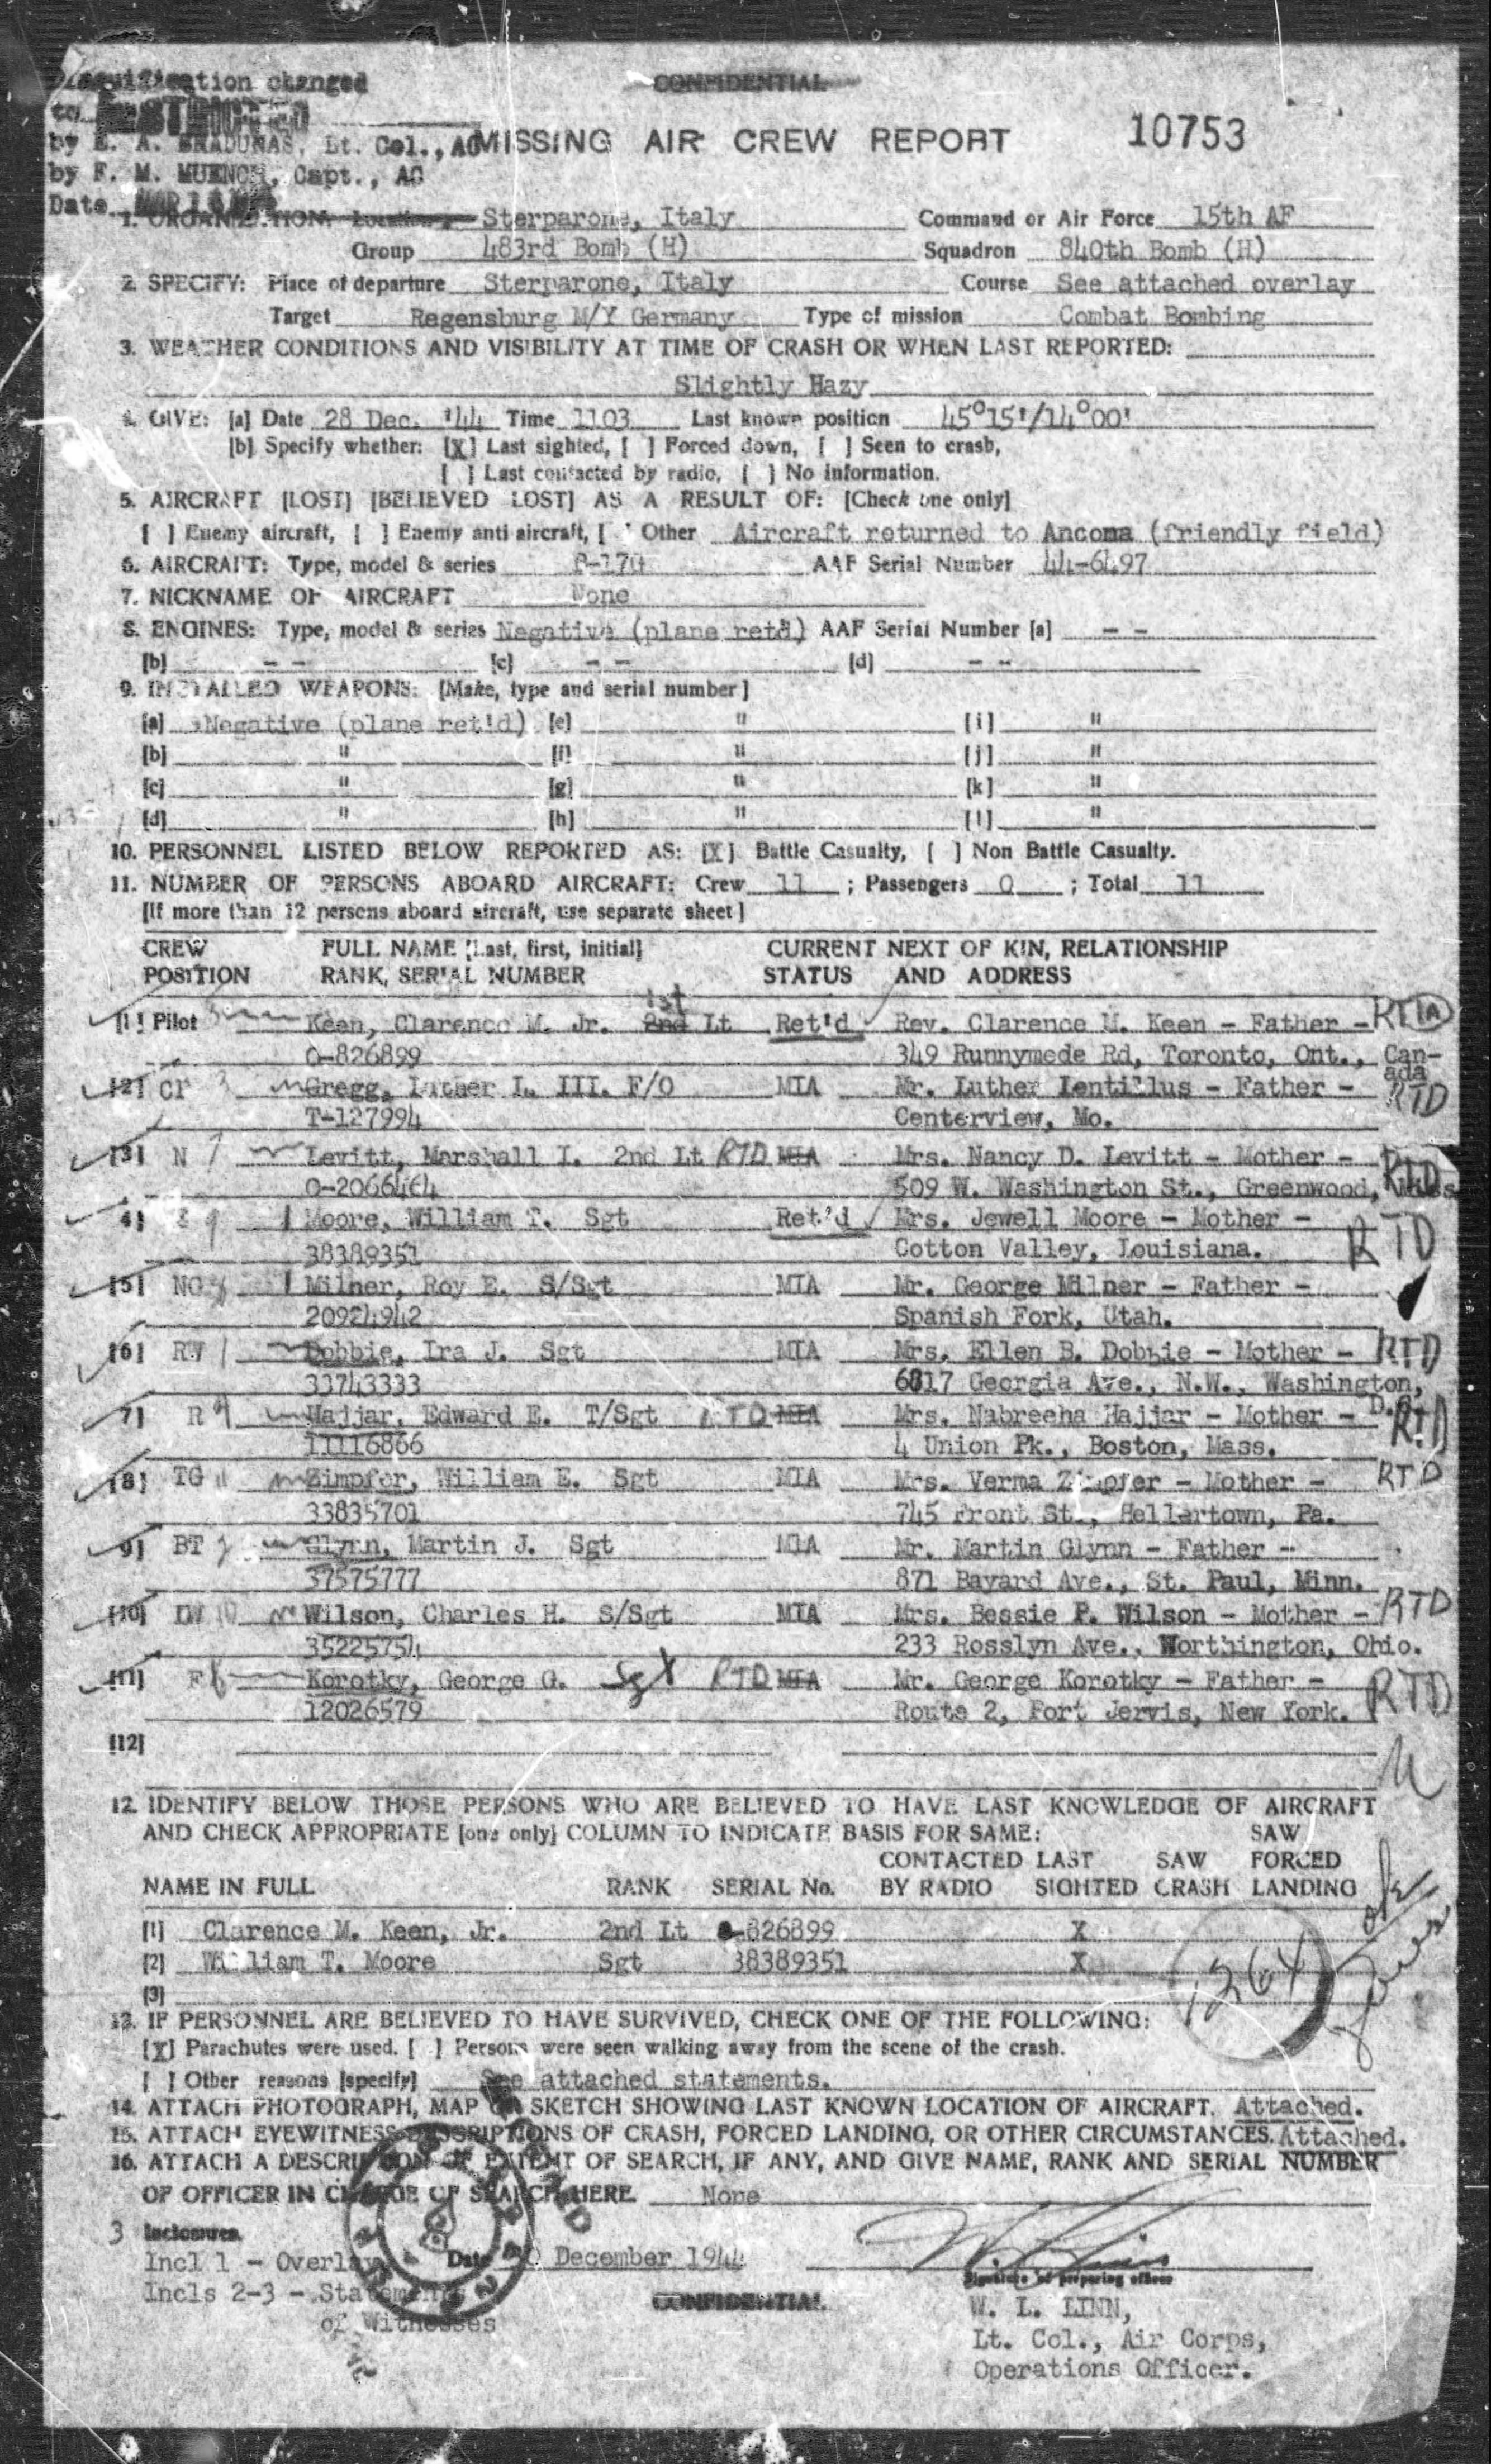 Classification changed
CONFIDENTIAL
to
by E. A. BRADUNAS, Lt. Col., AC
MISSING AIR CREW REPORT 10753
by F. M. MUENCH, Capt., AC
Date
1. ORGANIZATION: Location, Sterparone, Italy Command or Air Force 15th AF
Group 483rd Bomb (H) Squadron 840th Bomb (H)
2. SPECIFY: Place of departure Sterparone, Italy Course See attached overlay
Target Regensburg M/Y Germany Type of mission Combat Bombing
3. WEATHER CONDITIONS AND VISIBILITY AT TIME OF CRASH OR WHEN LAST REPORTED:
Slightly Hazy
4. GIVE: [a] Date 28 Dec. '44 Time 1103 Last known position 45°15'/14°00'
[b] Specify whether: [X] Last sighted, [ ] Forced down, [ ] Seen to crash,
[ ] Last contacted by radio, [ ] No information.
5. AIRCRAFT [LOST] [BELIEVED LOST] AS A RESULT OF: [Check one only]
[ ] Enemy aircraft, [ ] Enemy anti aircraft, [ ] Other Aircraft returned to Ancona (friendly field)
6. AIRCRAFT: Type, model & series B-17G AAF Serial Number 44-6497
7. NICKNAME OF AIRCRAFT None
8. ENGINES: Type, model & series Negative (plane retd) AAF Serial Number [a] - -
[b] - - [c] - - [d] - -
9. INSTALLED WEAPONS: [Make, type and serial number]
[a] Negative (plane ret'd) [e] " [i] "
[b] " [f] " [j] "
[c] " [g] " [k] "
[d] " [h] " [l] "
10. PERSONNEL LISTED BELOW REPORTED AS: [X] Battle Casualty, [ ] Non Battle Casualty.
11. NUMBER OF PERSONS ABOARD AIRCRAFT: Crew 11 ; Passengers 0 ; Total 11
[If more than 12 persons aboard aircraft, use separate sheet]
CREW FULL NAME [Last, first, initial] CURRENT NEXT OF KIN, RELATIONSHIP
POSITION RANK, SERIAL NUMBER STATUS AND ADDRESS
1st
[1] Pilot Keen, Clarence M. Jr. 2nd Lt Ret'd Rev. Clarence M. Keen - Father -
O-826899 349 Runnymede Rd, Toronto, Ont., Can-
ada
[2] CP Gregg, Luther L. III. F/O MIA Mr. Luther Lentillus - Father - RTD
T-127994 Centerview, Mo.
[3] N Levitt, Marshall I. 2nd Lt RTD MIA Mrs. Nancy D. Levitt - Mother - RTD
509 W. Washington St., Greenwood, Miss
[4] Moore, William T. Sgt Ret'd Mrs. Jewell Moore - Mother - RTD
38389351 Cotton Valley, Louisiana.
[5] NG Milner, Roy E. S/Sgt MIA Mr. George Milner - Father -
20924942 Spanish Fork, Utah.
[6] RW Dobbie, Ira J. Sgt MIA Mrs. Ellen B. Dobbie - Mother - RTD
33743333 6817 Georgia Ave., N.W., Washington,
D.C.
[7] R Hajjar, Edward E. T/Sgt RTD MIA Mrs. Nabreeha Hajjar - Mother - RTD
11116866 4 Union Pk., Boston, Mass.
[8] TG Zimpfer, William E. Sgt MIA Mrs. Verma Zimpfer - Mother - RTD
33835701 745 Front St., Hellertown, Pa.
[9] BT Glynn, Martin J. Sgt MIA Mr. Martin Glynn - Father -
37575777 871 Bayard Ave., St. Paul, Minn.
[10] LW Wilson, Charles H. S/Sgt MIA Mrs. Bessie P. Wilson - Mother - RTD
35225754 233 Rosslyn Ave., Worthington, Ohio.
[11] F Korotky, George G. Sgt RTD MIA Mr. George Korotky - Father - RTD
12026579 Route 2, Port Jervis, New York.
[12]
12. IDENTIFY BELOW THOSE PERSONS WHO ARE BELIEVED TO HAVE LAST KNOWLEDGE OF AIRCRAFT
AND CHECK APPROPRIATE [one only] COLUMN TO INDICATE BASIS FOR SAME: SAW
CONTACTED LAST SAW FORCED
NAME IN FULL RANK SERIAL No. BY RADIO SIGHTED CRASH LANDING
[1] Clarence M. Keen, Jr. 2nd Lt O-826899 X
[2] William T. Moore Sgt 38389351 X
[3]
13. IF PERSONNEL ARE BELIEVED TO HAVE SURVIVED, CHECK ONE OF THE FOLLOWING:
[X] Parachutes were used. [ ] Persons were seen walking away from the scene of the crash.
[ ] Other reasons [specify] See attached statements.
14. ATTACH PHOTOGRAPH, MAP OR SKETCH SHOWING LAST KNOWN LOCATION OF AIRCRAFT. Attached.
15. ATTACH EYEWITNESS DESCRIPTIONS OF CRASH, FORCED LANDING, OR OTHER CIRCUMSTANCES. Attached.
16. ATTACH A DESCRIPTION OF EXTENT OF SEARCH, IF ANY, AND GIVE NAME, RANK AND SERIAL NUMBER
OF OFFICER IN CHARGE OF SEARCH HERE None
3 Inclosures
Incl 1 - Overlay Date 30 December 1944
Signature of preparing officer
Incls 2-3 - Statements CONFIDENTIAL W. L. LINN,
of Witnesses Lt. Col., Air Corps,
Operations Officer.